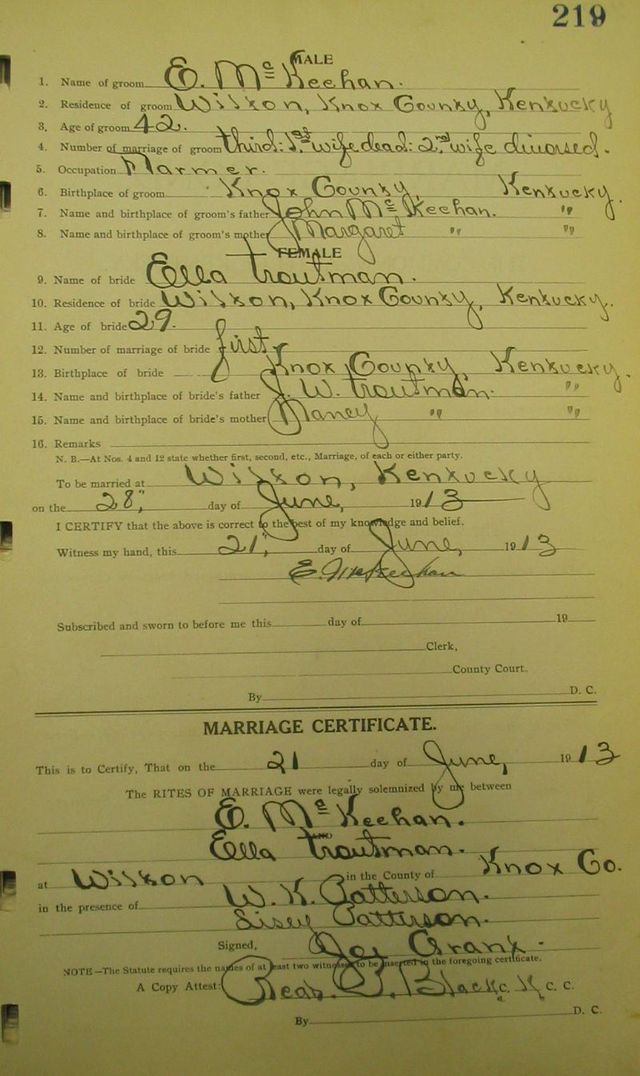 219
MALE
1. Name of groom E. McKeehan.
2. Residence of groom Wilton, Knox County, Kentucky
3. Age of groom 42.
4. Number of marriage of groom third: 1st wife dead: 2nd wife divorsed.
5. Occupation Farmer.
6. Birthplace of groom Knox County, Kentucky.
7. Name and birthplace of groom's father John McKeehan. "
8. Name and birthplace of groom's mother Margaret " "
FEMALE
9. Name of bride Ella Troutman.
10. Residence of bride Wilton, Knox County, Kentucky.
11. Age of bride 29.
12. Number of marriage of bride first
13. Birthplace of bride Knox County, Kentucky.
14. Name and birthplace of bride's father J. W. Troutman. "
15. Name and birthplace of bride's mother Nancy " "
16. Remarks
N. B.—At Nos. 4 and 12 state whether first, second, etc., Marriage, of each or either party.
To be married at Wilton, Kentucky
on the 28, day of June, 1913
I CERTIFY that the above is correct to the best of my knowledge and belief.
Witness my hand, this 21, day of June, 1913
E. McKeehan
Subscribed and sworn to before me this day of 19
Clerk,
County Court.
By D. C.
MARRIAGE CERTIFICATE.
This is to Certify, That on the 21 day of June, 1913
The RITES OF MARRIAGE were legally solemnized by me between
E. McKeehan.
Ella Troutman.
at Wilton in the County of Knox Co.
in the presence of W. K. Patterson.
Patterson.
Signed, Joe Grant.
NOTE—The Statute requires the names of at least two witnesses to be inserted in the foregoing certificate.
A Copy Attest: Read P. Black C. K. C. C.
By D. C.